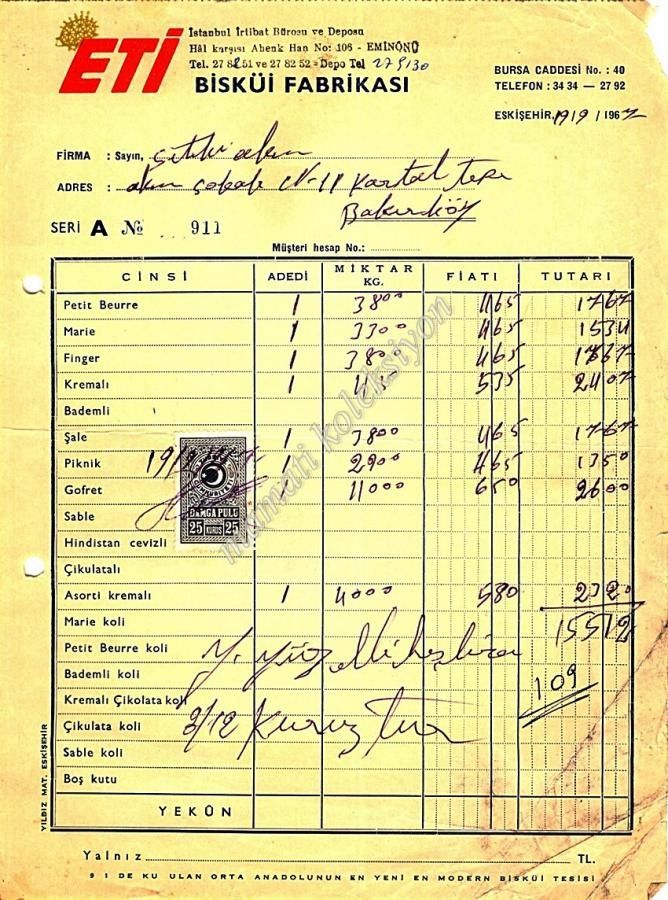 ETİ
İstanbul İrtibat Bürosu ve Deposu
Hâl karşısı Ahenk Han No: 106 - EMİNÖNÜ
Tel. 27 82 51 ve 27 82 52 - Depo Tel
BİSKÜİ FABRİKASI
BURSA CADDESİ No. : 40
TELEFON : 34 34 — 27 92
ESKİŞEHİR, 19/9/1967
FİRMA : Sayın,
ADRES : N-11 Kartal tepe
Bakırköy
SERİ A № 911
Müşteri hesap No.:
CİNSİ ADEDİ MİKTAR KG. FİATI TUTARI
Petit Beurre 1 3800 465 1767
Marie 1 3300 465 1534
Finger 1 3800 465 1767
Kremalı 1 45 535 2407
Bademli
Şale 1 3800 465 1767
Piknik 1 2900 465 1350
Gofret 1 650 2600
Sable
DAMGA PULU
25 KURUŞ 25
Hindistan cevizli
Çikulatalı
Asorti kremalı 1 4000 580 2320
Marie koli 15512
Petit Beurre koli
Bademli koli
109
Kremalı Çikolata koli
Çikulata koli
Sable koli
Boş kutu
YEKÛN
Yalnız TL.
9 1 DE KU ULAN ORTA ANADOLUNUN EN YENİ EN MODERN BİSKÜİ TESİSİ
YILDIZ MAT. ESKİŞEHİR
mamati koleksiyon